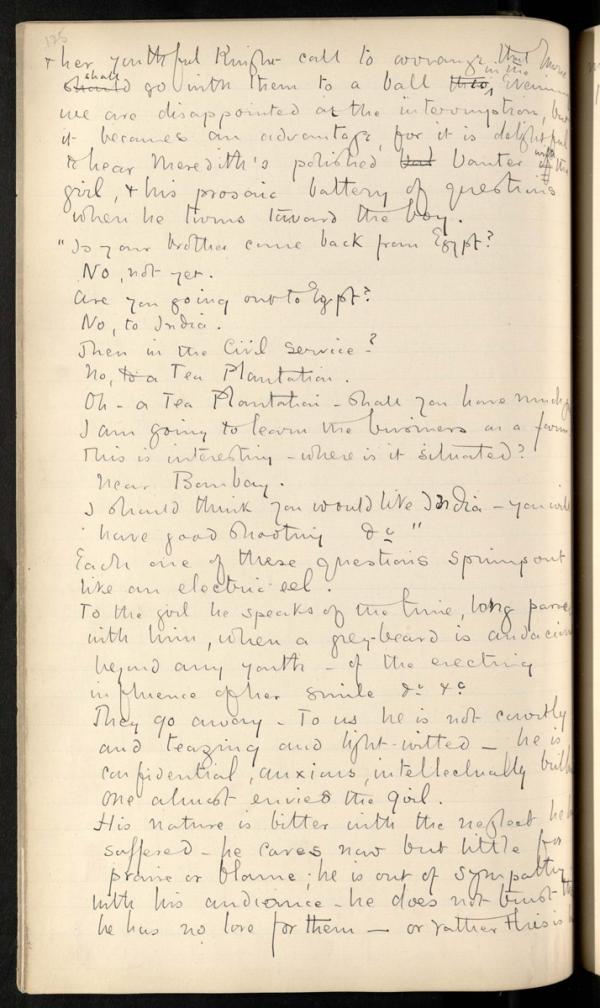 125
& her youthful Knight call to arrange that
shall
should go with them to a ball this, in the Evening
we are disappointed at the interruption, but
it becomes an advantage, for it is delightful
to hear Meredith's polished banter with the
girl, & his prosaic battery of questions
when he turns toward the boy.
"Is your brother come back from Egypt?
No, not yet.
Are you going out to Egypt?
No, to India.
Then in the Civil Service?
No, to a Tea Plantation.
Oh - a Tea Plantation - Shall you have much
I am going to learn the business on a farm
This is interesting - where is it situated?
Near Bombay.
I should think you would like India - you will
have good shooting &c"
Each one of these questions springs out
like an electric eel.
To the girl he speaks of the time, long
with him, when a grey-beard is audacious
beyond any youth - of the erecting
influence of her smile &c &c
They go away - To us he is not courtly
and teazing and light-witted - he is
confidential, anxious, intellectually
One almost envies the girl.
His nature is bitter with the neglect he
suffered - he cares now but little for
praise or blame; he is out of sympathy
with his audience - he does not trust
he has no love for them - or rather this is